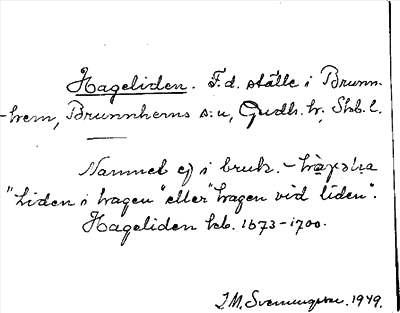 Hageliden. F.d. ställe i Brunn-
-hem, Brunnhems s:n, Gudh. h., Skb. l.
Namnet ej i bruk. -
"Liden i hagen" eller "hagen vid liden".
Hageliden beb. 1673-1700.
J.M. Svenungsson. 1949.